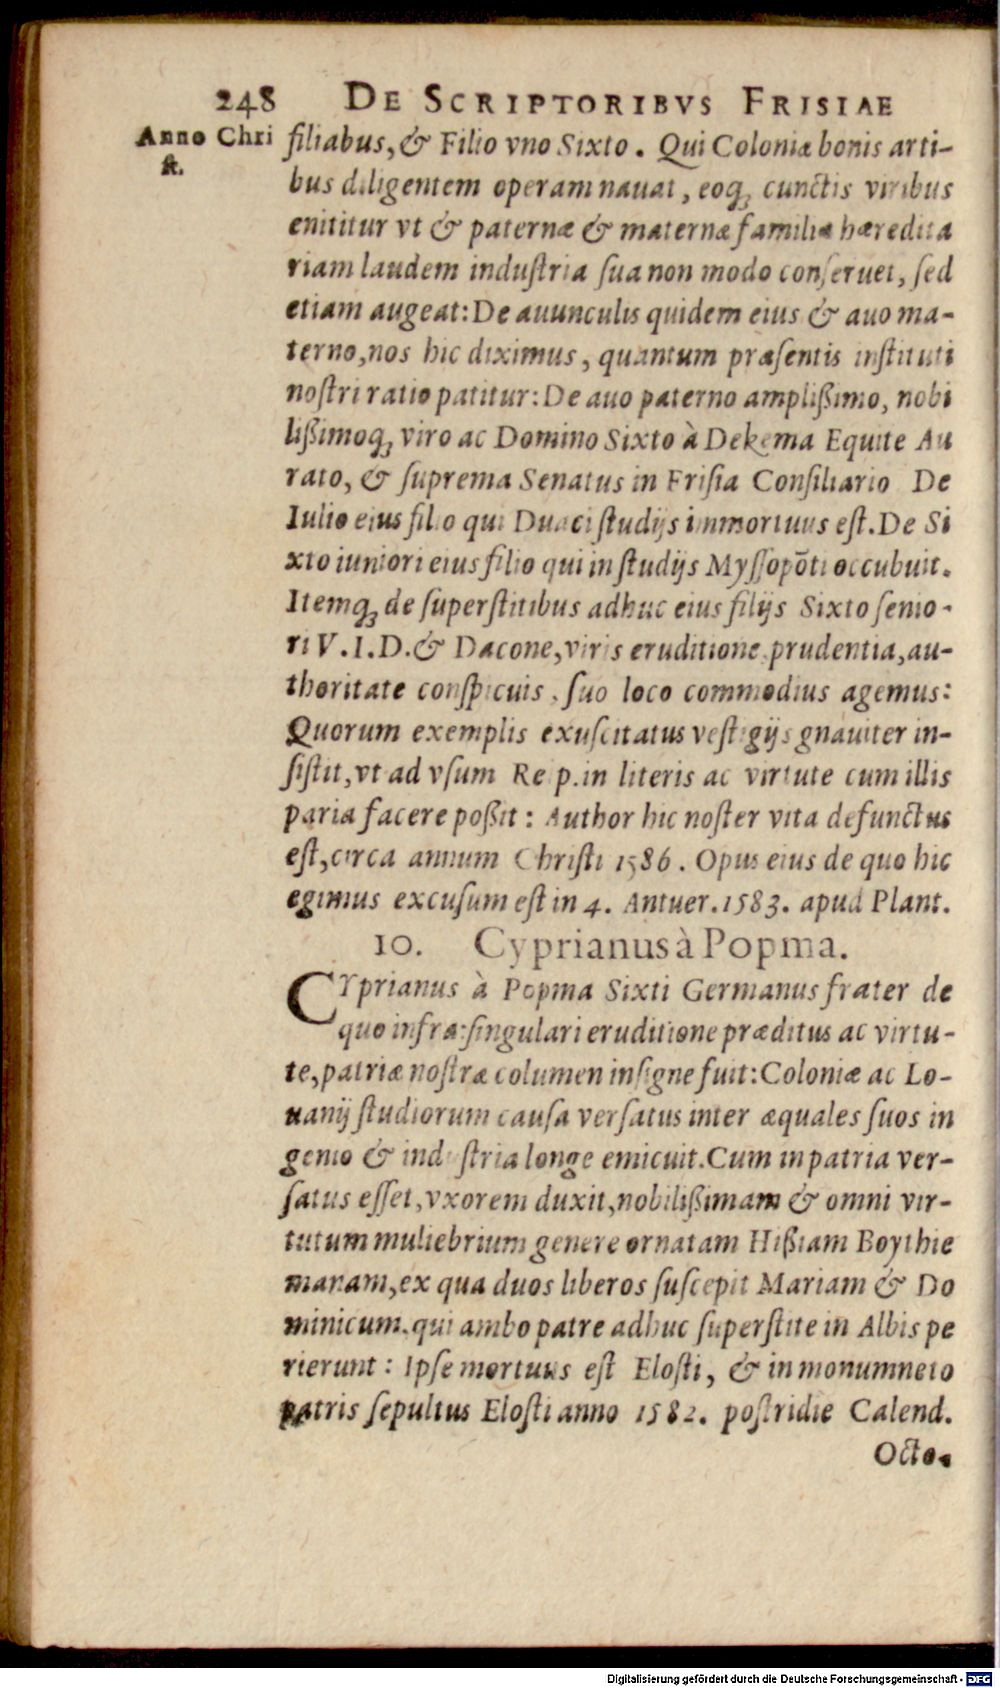 248 DE SCRIPTORIBVS FRISIAE
Anno Chri
st.
filiabus, & Filio vno Sixto. Qui Coloniæ bonis arti-
bus diligentem operam nauat, eoq; cunctis viribus
enititur vt & paternæ & maternæ familiæ hæredita
riam laudem industria sua non modo conseruet, sed
etiam augeat: De auunculis quidem eius & auo ma-
terno, nos hic diximus, quantum præsentis instituti
nostri ratio patitur: De auo paterno amplißimo, nobi
lißimoq; viro ac Domino Sixto à Dekema Equite Au
rato, & suprema Senatus in Frisia Consiliario De
Iulio eius filio qui Duaci studijs immortuus est. De Si
xto iuniori eius filio qui in studijs Myssopōti occubuit.
Itemq; de superstitibus adhuc eius filijs Sixto senio-
ri V. I. D. & Dacone, viris eruditione, prudentia, au-
thoritate conspicuis, suo loco commodius agemus:
Quorum exemplis exuscitatus vestigijs gnauiter in-
sistit, vt ad vsum Reip. in literis ac virtute cum illis
paria facere poßit: Author hic noster vita defunctus
est, circa annum Christi 1586. Opus eius de quo hic
egimus excusum est in 4. Antuer. 1583. apud Plant.
10. Cyprianus à Popma.
CYprianus à Popma Sixti Germanus frater de
quo infra: singulari eruditione præditus ac virtu-
te, patriæ nostræ columen insigne fuit: Coloniæ ac Lo-
uanij studiorum causa versatus inter æquales suos in
genio & industria longe emicuit. Cum in patria ver-
satus esset, vxorem duxit, nobilißimam & omni vir-
tutum muliebrium genere ornatam Hißiam Boythie
manam, ex qua duos liberos suscepit Mariam & Do
minicum, qui ambo patre adhuc superstite in Albis pe
rierunt: Ipse mortuus est Elosti, & in monumneto
patris sepultus Elosti anno 1582. postridie Calend.
Octo-
Digitalisierung gefördert durch die Deutsche Forschungsgemeinschaft - DFG